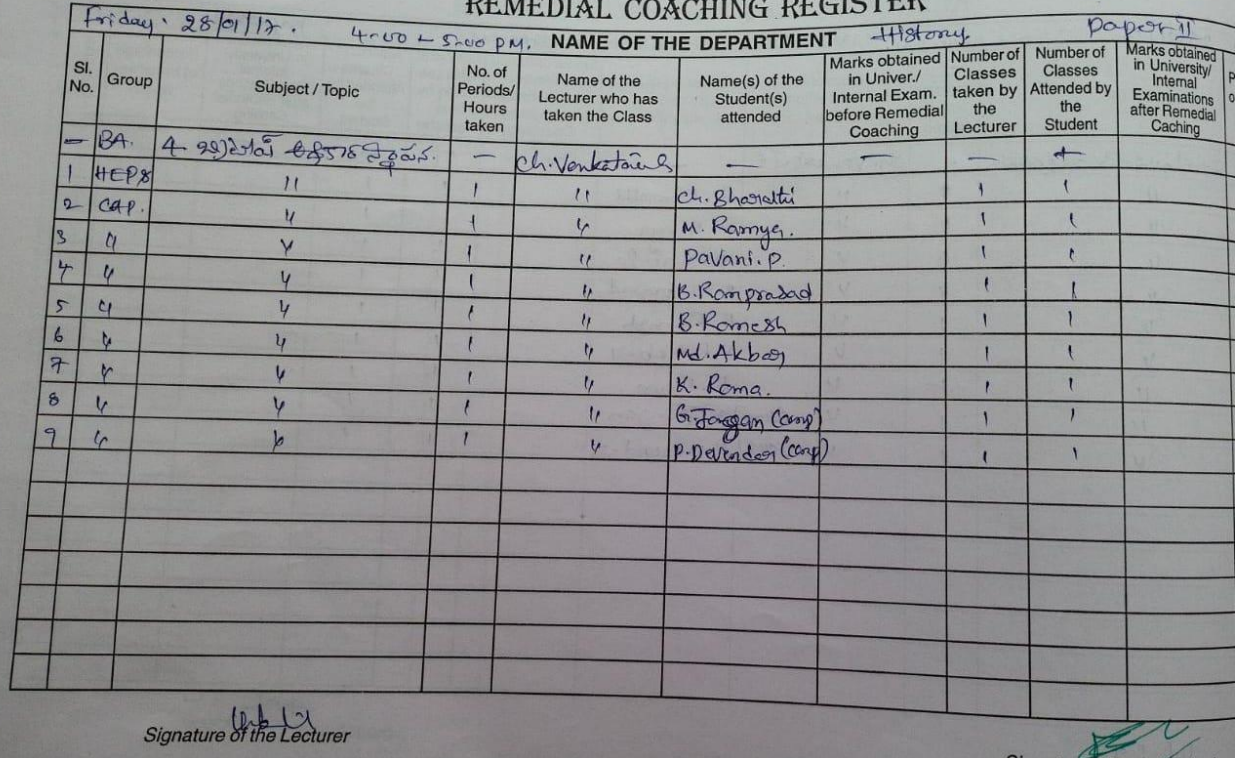 REMEDIAL COACHING REGISTER
Friday. 28/01/17. 4-00 - 5-00 PM. NAME OF THE DEPARTMENT History Paper II
Sl. No. Group Subject / Topic No. of Periods/ Hours taken Name of the Lecturer who has taken the Class Name(s) of the Student(s) attended Marks obtained in Univer./ Internal Exam. before Remedial Coaching Number of Classes taken by the Lecturer Number of Classes Attended by the Student Marks obtained in University/ Internal Examinations after Remedial Caching
— BA. 4 బ్రిటిష్ అధికార స్థాపన. — Ch. Venkataiah — — — —
1 HEP& " 1 " Ch. Bharathi 1 1
2 CAP. " 1 " M. Ramya. 1 1
3 " " 1 " Pavani. P. 1 1
4 " " 1 " B. Ramprasad 1 1
5 " " 1 " B. Romesh 1 1
6 " " 1 " Md. Akbar 1 1
7 " " 1 " K. Roma. 1 1
8 " " 1 " G. Jangan (comp) 1 1
9 " " 1 " P. Devender (comp) 1 1
Signature of the Lecturer